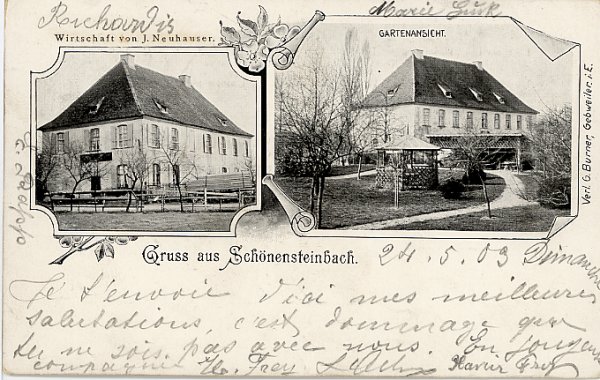 Richardis
Wirtschaft von J. Neuhauser.
Marie
GARTENANSICHT.
Verl. O. Burner, Gebweiler i. E.
Gruss aus Schönensteinbach.
24. 5. 03 Dimanche
Je t'envoie d'ici mes meilleures
salutations, c'est dommage que
tu ne sois pas avec nous. En
compagne H. Frey Xavier Frey